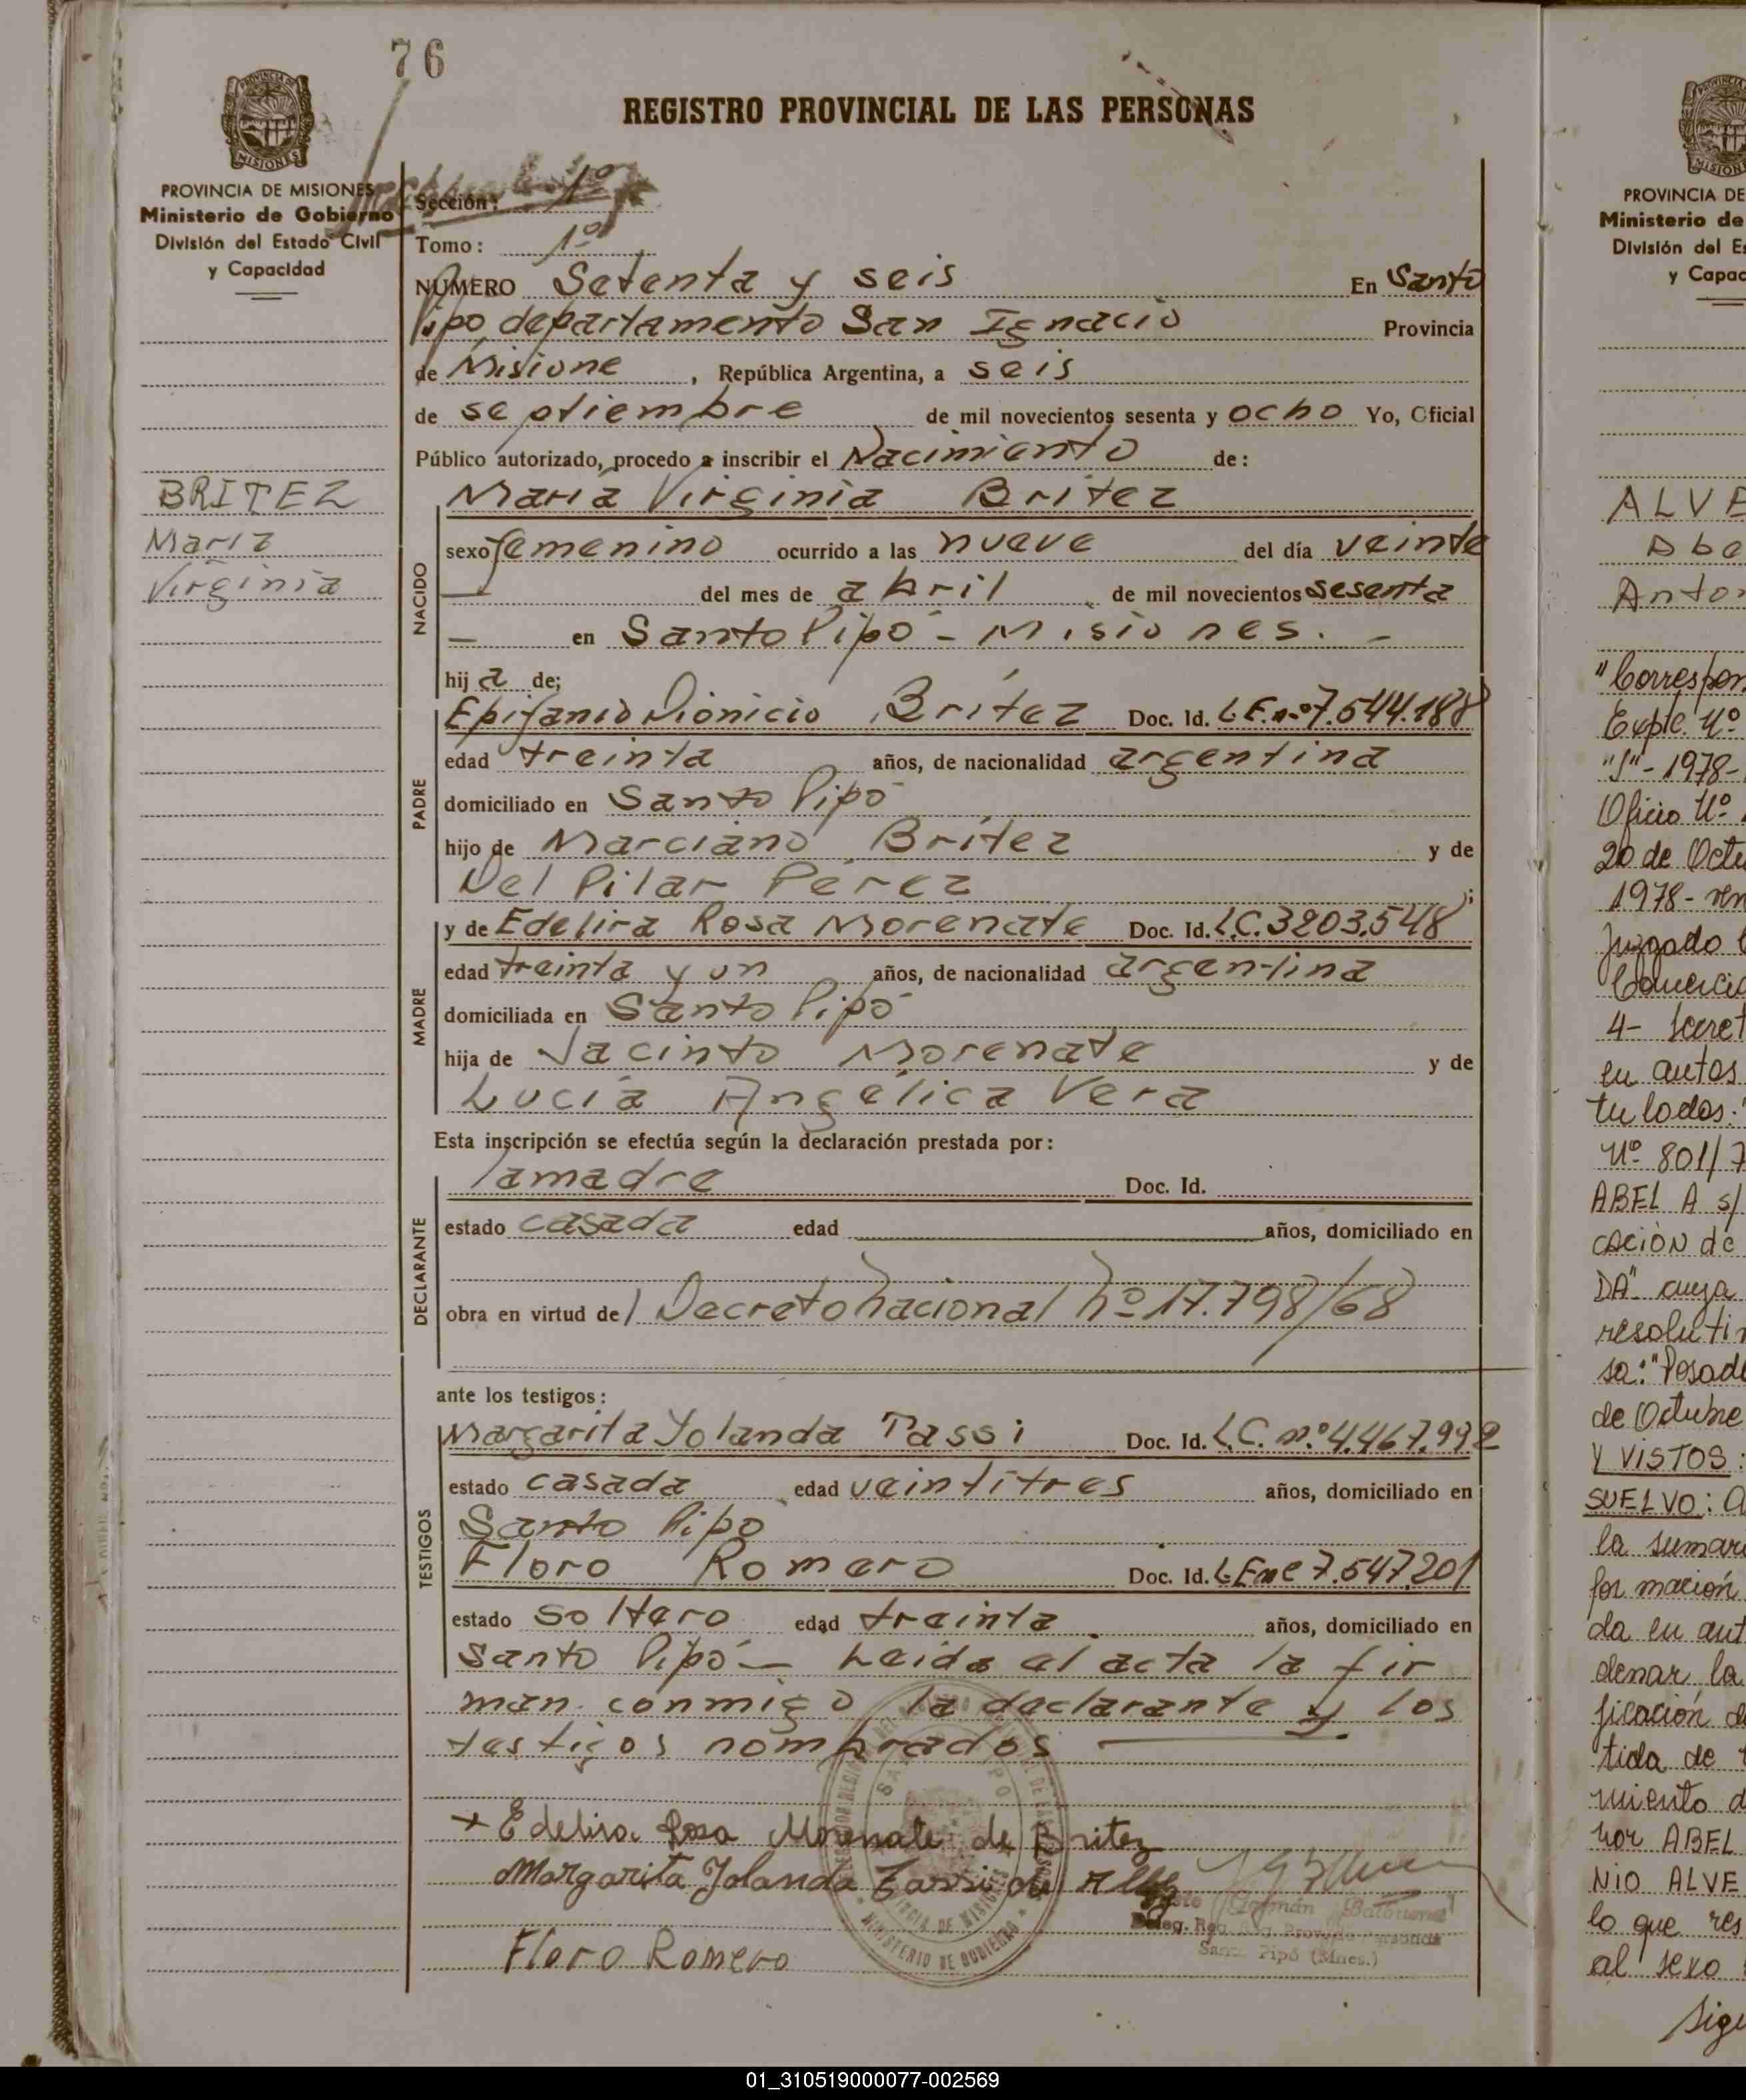 76
REGISTRO PROVINCIAL DE LAS PERSONAS
PROVINCIA DE MISIONES
Ministerio de Gobierno
División del Estado Civil
y Capacidad
Sección: 1º
Tomo: 1º
NUMERO Setenta y seis En Santo
Pipo departamento San Ignacio Provincia
de Misione, República Argentina, a seis
de septiembre de mil novecientos sesenta y ocho Yo, Oficial
Público autorizado, procedo a inscribir el Nacimiento de:
BRITEZ
María
Virginia
María Virginia Britez
NACIDO
sexo femenino ocurrido a las nueve del día veinte
del mes de abril de mil novecientos sesenta
— en Santo Pipó - Misiones. -
hij a de;
PADRE
Epifanio Dionicio Britez Doc. Id. L.E. nº 7.544.188
edad treinta años, de nacionalidad argentina
domiciliado en Santo Pipó
hijo de Marciano Britez y de
Del Pilar Pérez ;
MADRE
y de Edelira Rosa Morenate Doc. Id. L.C. 3203.548
edad treinta y un años, de nacionalidad argentina
domiciliada en Santo Pipó
hija de Jacinto Morenate y de
Lucía Angélica Vera
Esta inscripción se efectúa según la declaración prestada por:
DECLARANTE
la madre Doc. Id.
estado casada edad años, domiciliado en
obra en virtud de Decreto nacional nº 17.798/68
ante los testigos:
TESTIGOS
Margarita Yolanda Tassi Doc. Id. L.C. nº 4.467.992
estado casada edad veintitres años, domiciliado en
Santo Pipo
Floro Romero Doc. Id. L.E. nº 7.547.201
estado soltero edad treinta años, domiciliado en
Santo Pipó — Leida el acta la fir
man conmigo la declarante y los
testigos nombrados —
+ Edelira Rosa Morenate de Britez
Margarita Yolanda Tassi de
Germán
Deleg. Reg.
Santo Pipó (Mnes.)
Floro Romero
MINISTERIO DE GOBIERNO
PROVINCIA DE MISIONES
PROVINCIA DE
Ministerio de
División del Es
y Capac
ALVE
Abe
Anton
"Correspon
Expte. Nº
"J" - 1978-
Oficio Nº
20 de Octu
1978 - ren
Juzgado C
Comercia
4- Secret
en autos
tulados:"
Nº 801/7
ABEL A s/
CACIÓN de
DA" cuya
resoluti
sa: "Posad
de Octubre
Y VISTOS:
SUELVO: a
la sumari
formación
da en aut
denar la
ficación d
tida de
miento d
nor ABEL
NIO ALVE
lo que res
al sexo
Sigu
01_310519000077-002569